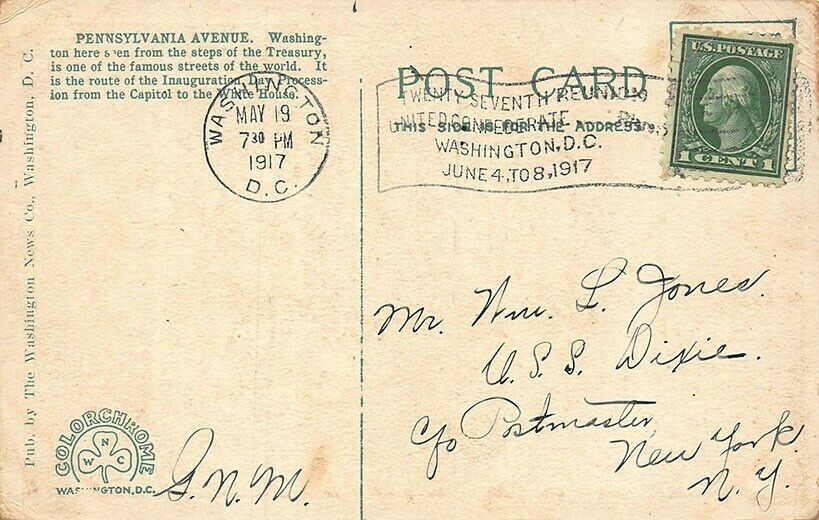 PENNSYLVANIA AVENUE. Washing-
ton here seen from the steps of the Treasury,
is one of the famous streets of the world. It
is the route of the Inauguration Day Process-
ion from the Capitol to the White House.
Pub. by The Washington News Co., Washington, D. C.
WASHINGTON
MAY 19
7 30 PM
1917
D.C.
POST CARD
THIS SIDE IS FOR THE ADDRESS
TWENTY SEVENTH REUNION
UNITED CONFEDERATE
WASHINGTON, D.C.
JUNE 4, TO 8, 1917
U.S. POSTAGE
1 CENT 1
Mr. Wm. L. Jones.
U. S. S. Dixie.
c/o Postmaster
New York
N. Y.
COLORCHROME
N
W C
WASHINGTON, D.C.
G. N. M.